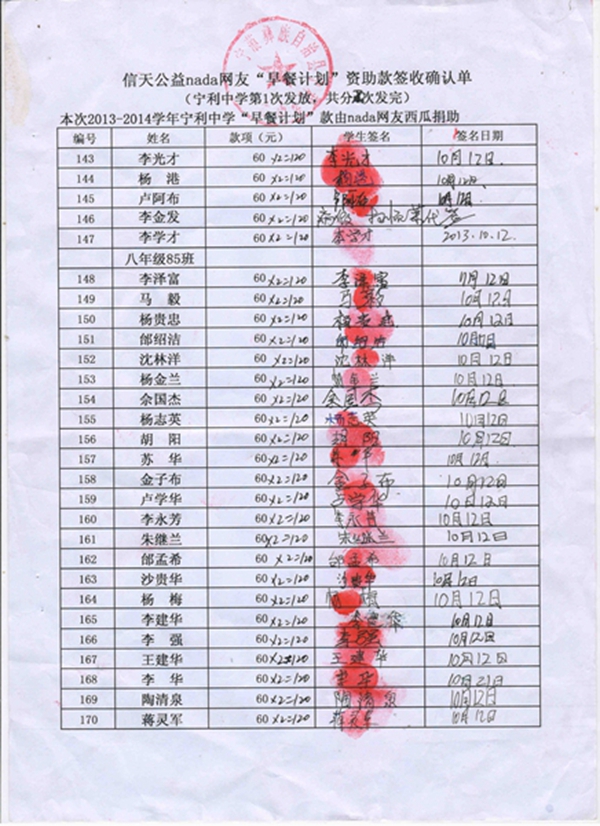 宁蒗彝族自治县
信天公益nada网友“早餐计划”资助款签收确认单
(宁利中学第1次发放,共分2次发完)
本次2013-2014学年宁利中学“早餐计划”款由nada网友西瓜捐助
编号 姓名 款项(元) 学生签名 签名日期
143 李光才 60 x2=120 李光才 10月12日
144 杨 港 60 x2=120 杨港 10月12日
145 卢阿布 60 x2=120 10月12日
146 李金发 60 x2=120 代签
147 李学才 60 x2=120 李学才 2013.10.12
八年级85班
148 李泽富 60 x2=120 李泽富 10月12日
149 马 毅 60 x2=120 马毅 10月12日
150 杨贵忠 60 x2=120 杨贵忠 10月12日
151 邰绍洁 60 x2=120 邰绍洁
152 沈林洋 60 x2=120 沈林洋 10月12日
153 杨金兰 60 x2=120 杨金兰 10月12日
154 余国杰 60 x2=120 余国杰 10月12日
155 杨志英 60 x2=120 杨志英 10月12日
156 胡 阳 60 x2=120 胡阳 10月12日
157 苏 华 60 x2=120 苏华 10月12日
158 金子布 60 x2=120 金子布 10月12日
159 卢学华 60 x2=120 卢学华 10月12日
160 李永芳 60 x2=120 李永芳 10月12日
161 朱继兰 60 x2=120 朱继兰 10月12日
162 邰孟希 60 x2=120 邰孟希 10月12日
163 沙贵华 60 x2=120 沙贵华 10月12日
164 杨 梅 60 x2=120 杨梅 10月12日
165 李建华 60 x2=120 李建华 10月12日
166 李 强 60 x2=120 李强 10月12日
167 王建华 60 x2=120 王建华 10月12日
168 李 华 60 x2=120 李华 10月21日
169 陶清泉 60 x2=120 陶清泉 10月12日
170 蒋灵军 60 x2=120 蒋灵军 10月12日